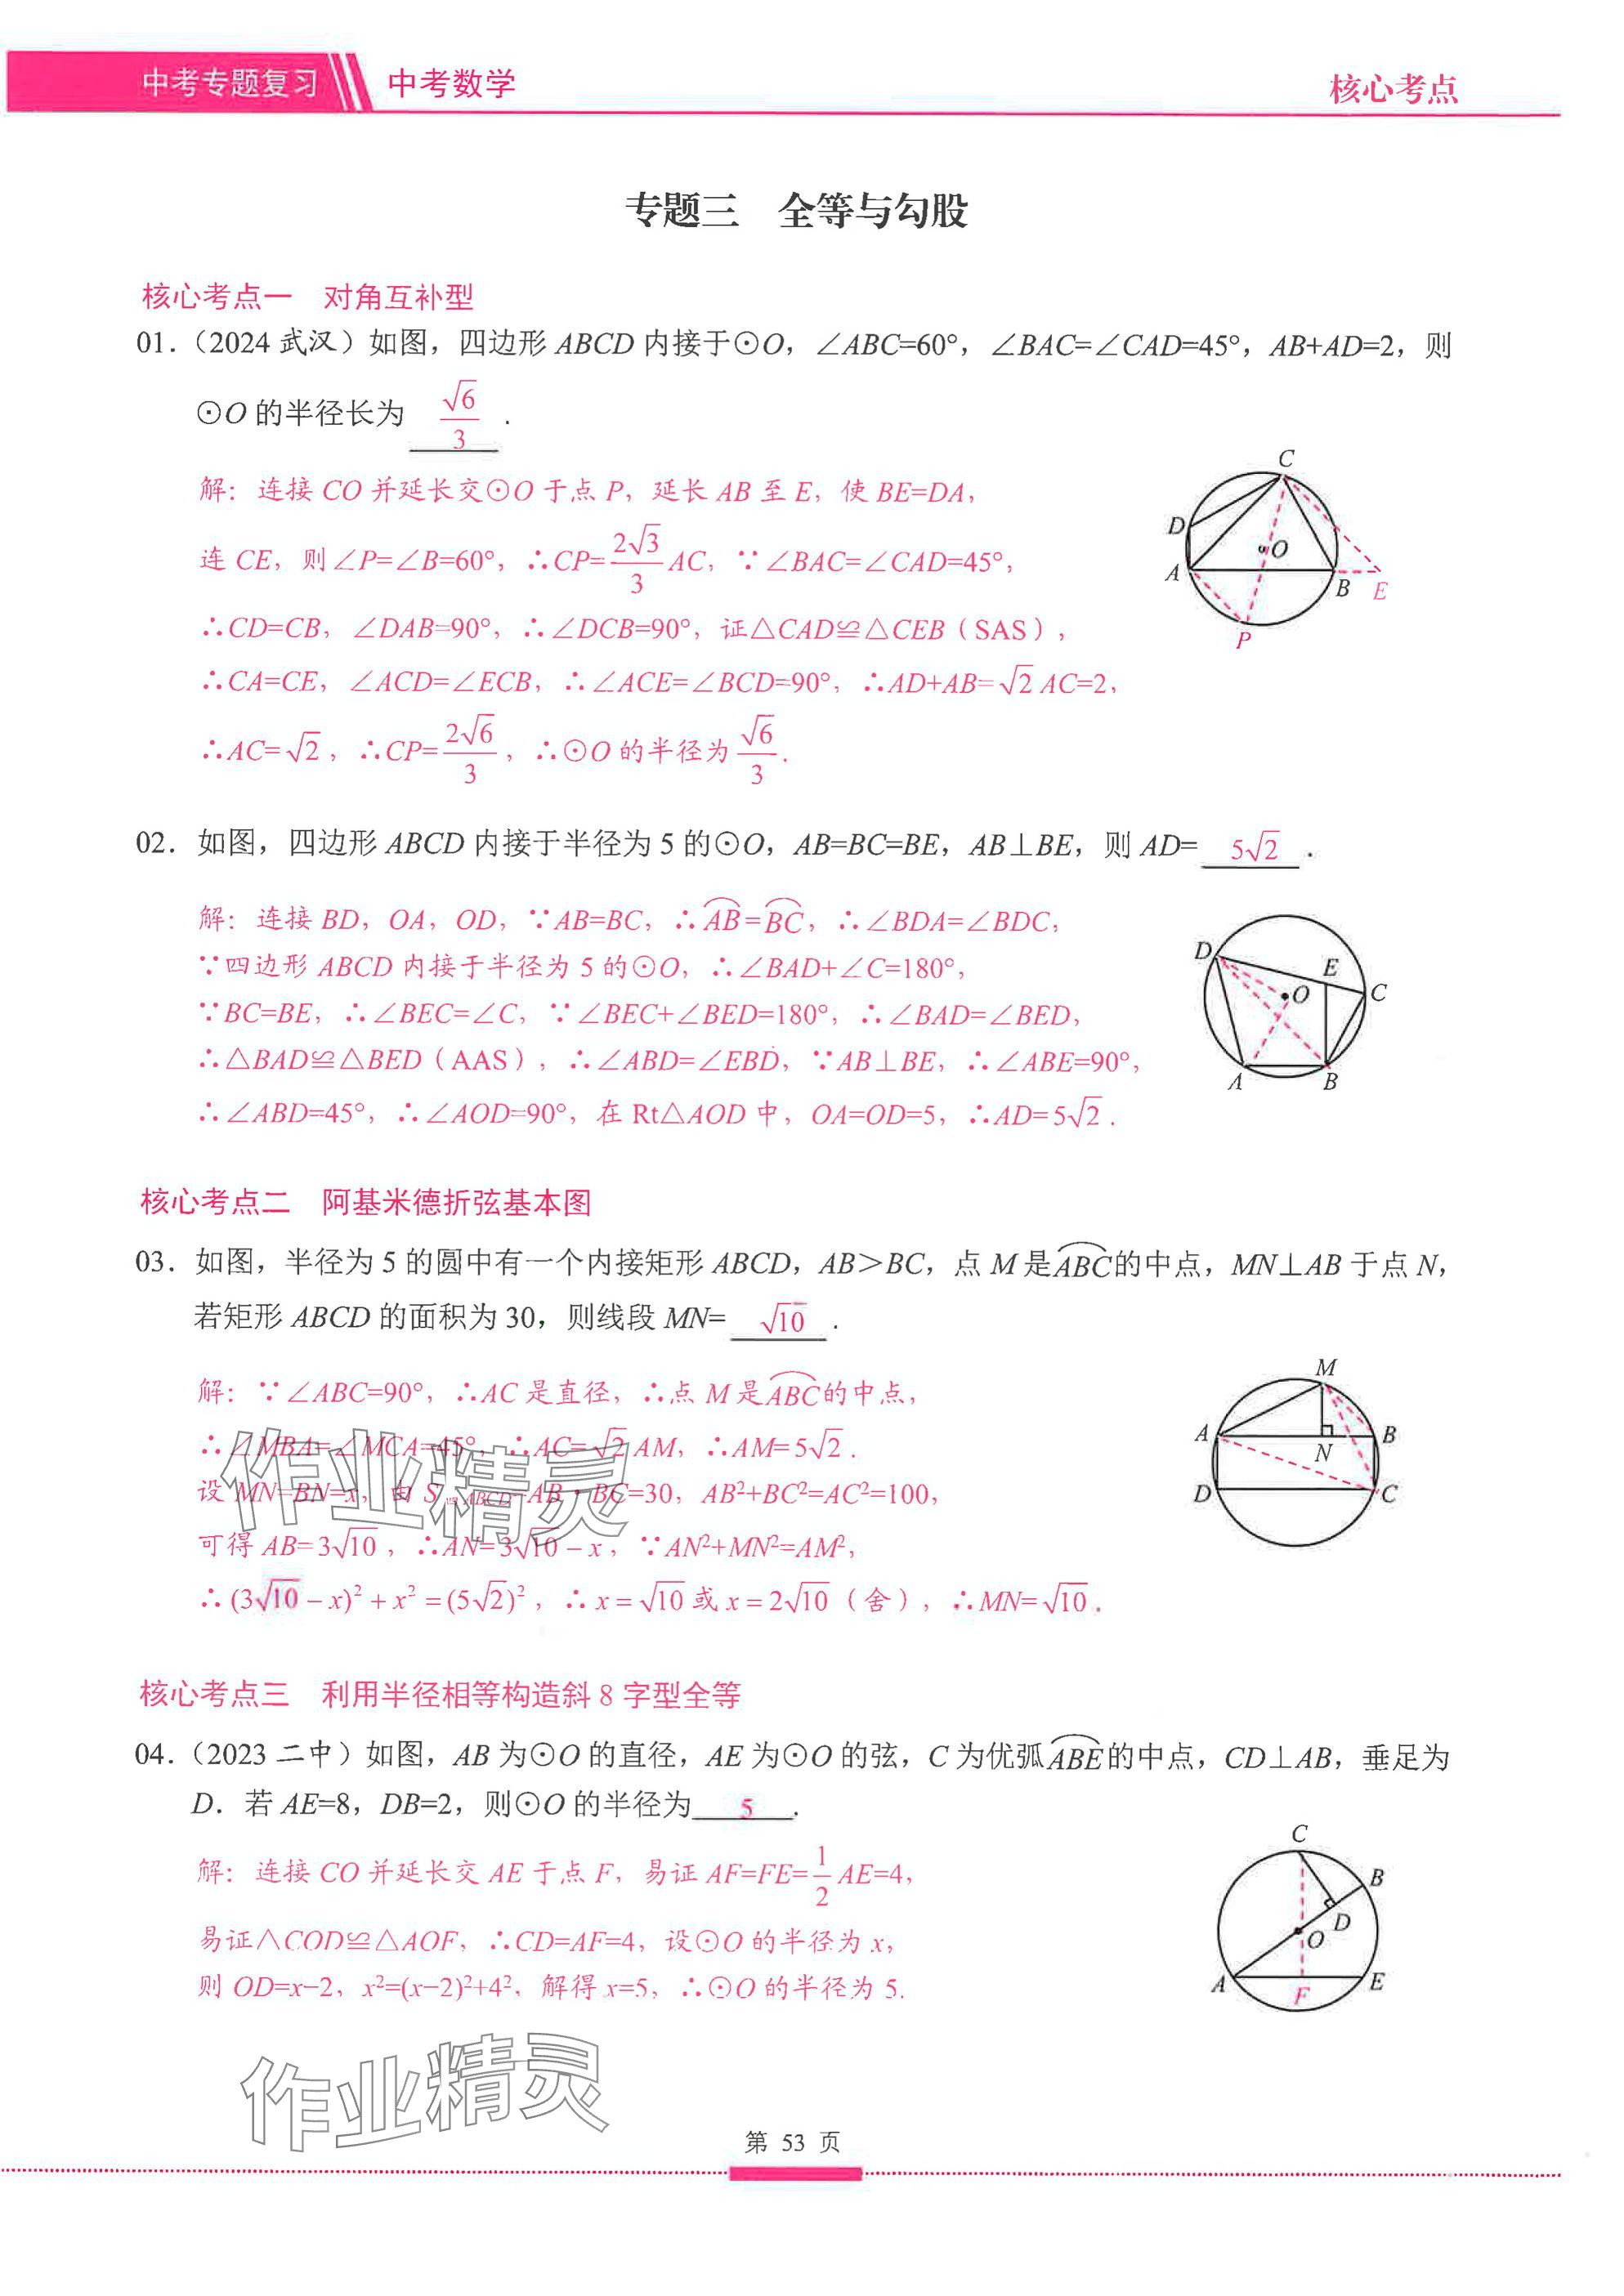 中考专题复习 中考数学 核心考点
专题三 全等与勾股
核心考点一 对角互补型
01.（2024 武汉）如图，四边形 ABCD 内接于⊙O，∠ABC=60°，∠BAC=∠CAD=45°，AB+AD=2，则
⊙O 的半径长为 √6/3 .
解：连接 CO 并延长交⊙O 于点 P，延长 AB 至 E，使 BE=DA，
连 CE，则∠P=∠B=60°，∴CP=2√3/3 AC，∵∠BAC=∠CAD=45°，
∴CD=CB，∠DAB=90°，∴∠DCB=90°，证△CAD≌△CEB（SAS），
∴CA=CE，∠ACD=∠ECB，∴∠ACE=∠BCD=90°，∴AD+AB=√2 AC=2，
∴AC=√2，∴CP=2√6/3，∴⊙O 的半径为 √6/3 .
C
D
O
A
B
E
P
02. 如图，四边形 ABCD 内接于半径为 5 的⊙O，AB=BC=BE，AB⊥BE，则 AD= 5√2 .
解：连接 BD，OA，OD，∵AB=BC，∴A͡B=B͡C，∴∠BDA=∠BDC，
∵四边形 ABCD 内接于半径为 5 的⊙O，∴∠BAD+∠C=180°，
∵BC=BE，∴∠BEC=∠C，∵∠BEC+∠BED=180°，∴∠BAD=∠BED，
∴△BAD≌△BED（AAS），∴∠ABD=∠EBD，∵AB⊥BE，∴∠ABE=90°，
∴∠ABD=45°，∴∠AOD=90°，在 Rt△AOD 中，OA=OD=5，∴AD=5√2 .
D
E
O
C
A
B
核心考点二 阿基米德折弦基本图
03. 如图，半径为 5 的圆中有一个内接矩形 ABCD，AB＞BC，点 M 是A͡B͡C的中点，MN⊥AB 于点 N，
若矩形 ABCD 的面积为 30，则线段 MN= √10 .
解：∵∠ABC=90°，∴AC 是直径，∴点 M 是A͡B͡C的中点，
∴∠MBA=∠MCA=45°，∴AC=√2 AM，∴AM=5√2 .
设 MN=BN=x，由 S ABCD=AB·BC=30，AB²+BC²=AC²=100，
可得 AB=3√10，∴AN=3√10−x，∵AN²+MN²=AM²，
∴(3√10−x)²+x²=(5√2)²，∴x=√10或x=2√10（舍），∴MN=√10 .
M
A
N
B
D
C
核心考点三 利用半径相等构造斜 8 字型全等
04.（2023 二中）如图，AB 为⊙O 的直径，AE 为⊙O 的弦，C 为优弧A͡B͡E的中点，CD⊥AB，垂足为
D．若 AE=8，DB=2，则⊙O 的半径为 5 .
解：连接 CO 并延长交 AE 于点 F，易证 AF=FE=1/2 AE=4，
易证△COD≌△AOF，∴CD=AF=4，设⊙O 的半径为 x，
则 OD=x−2，x²=(x−2)²+4²，解得 x=5，∴⊙O 的半径为 5.
C
B
D
O
A
F
E
作业精灵
作业精灵
第 53 页